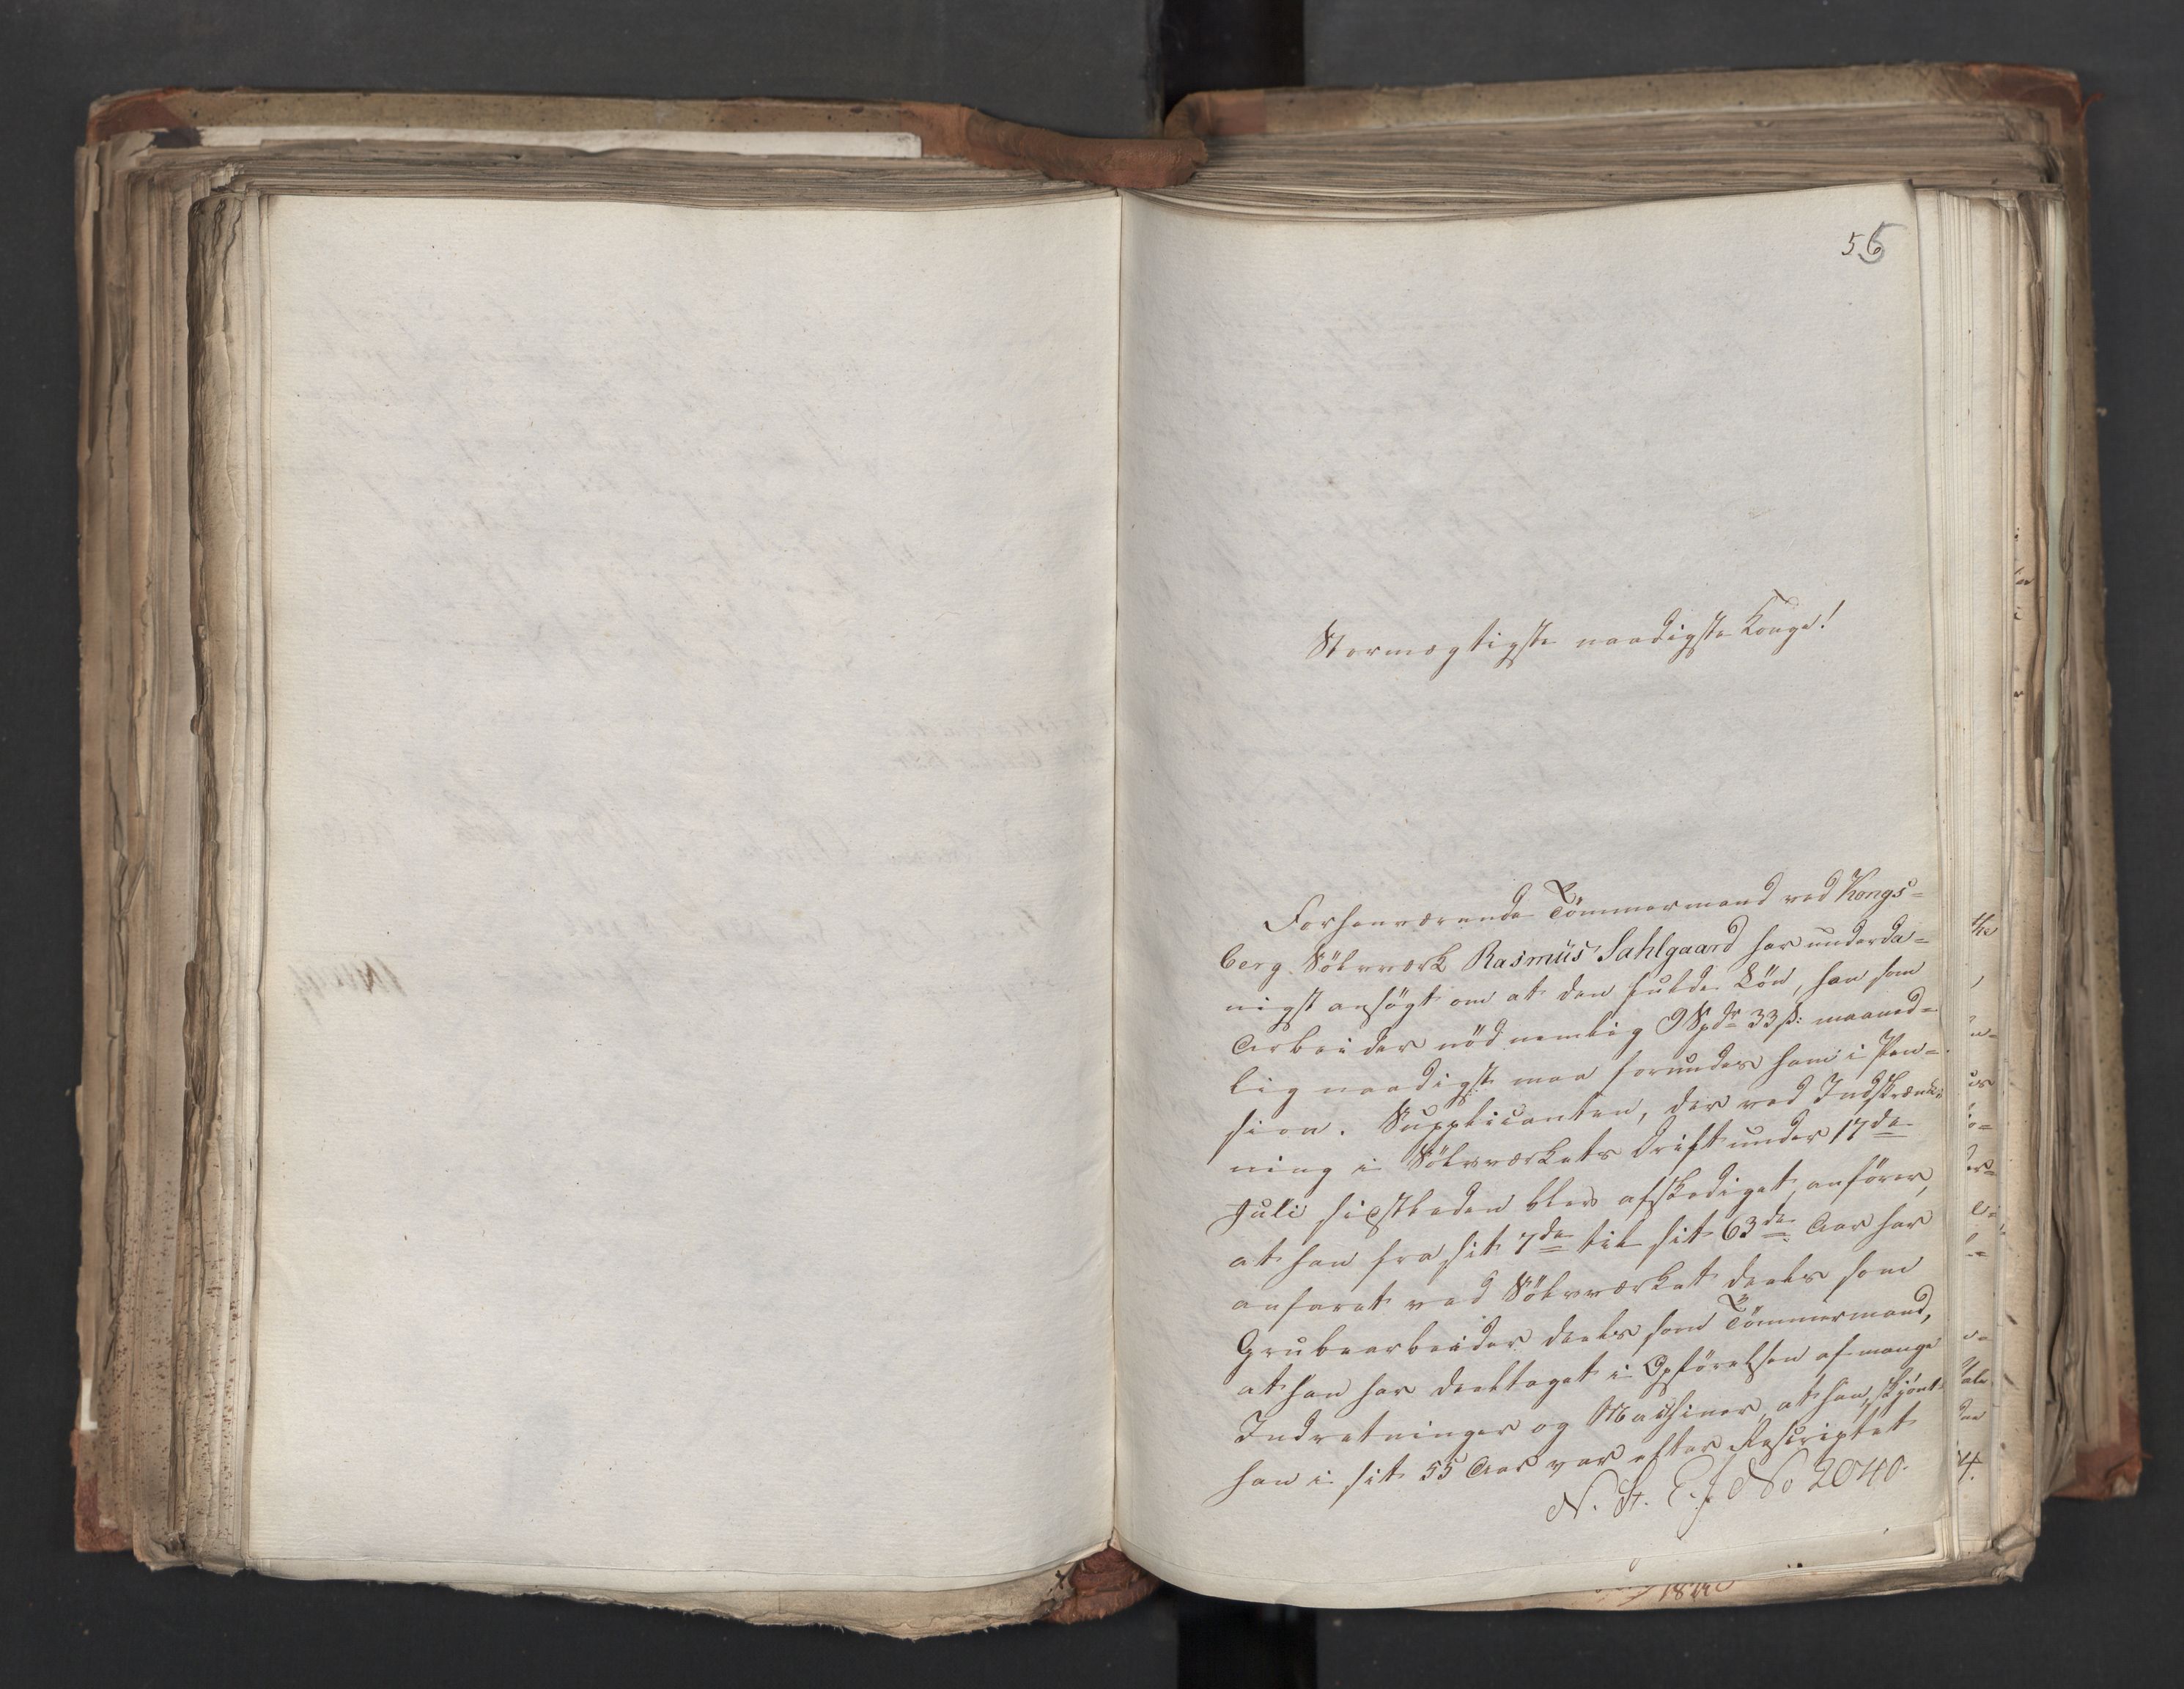 56
Stormægtigste naadigste Konge!
Forhenværende Tömmermand ved Kongs=
berg Sölvværk Rasmus Sahlgaard har underda=
nigst ansögt om at den fulde Lön, han som
Arbeider nöd nemlig 9 Spdr 33 ß: maaned=
lig naadigst maa forundes ham i Pen=
sion. Supplicanten, der ved Indskrænk=
ning i Sölvværkets Drift under 17de
Juli sidstleden blev afskediget, anförer,
at han fra sit 7de til sit 63de Aar har
anfaret ved Sölvværket deels som
Grubearbeider deels som Tömmermand,
at han har deeltaget i Opförelsen af mange
Indretninger og Maskiner, at han, skjönt
han i sit 55 Aar var efter Rescriptet
N. St. E.J. No 2040.